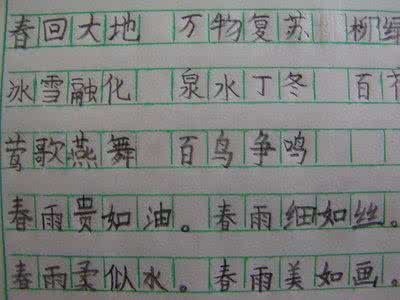 春回大地 万物复苏 柳绿
冰雪融化 泉水丁冬 百花
莺歌燕舞 百鸟争鸣
春雨贵如油。春雨细如丝。
春雨柔似水。春雨美如画。